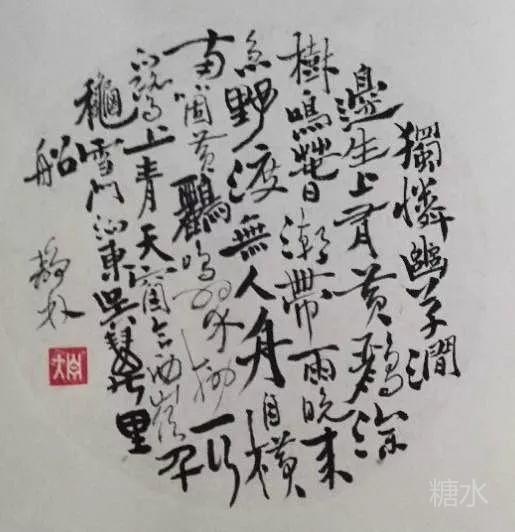 獨憐幽草澗
邊生上有黄鸝深
樹鳴萅潮帶雨晚来
急野渡無人舟自横
两箇黄鸝鳴翠柳一行
白鷺上青天窗含西嶺千
穐雪門泊東吳萬里
船
糖水